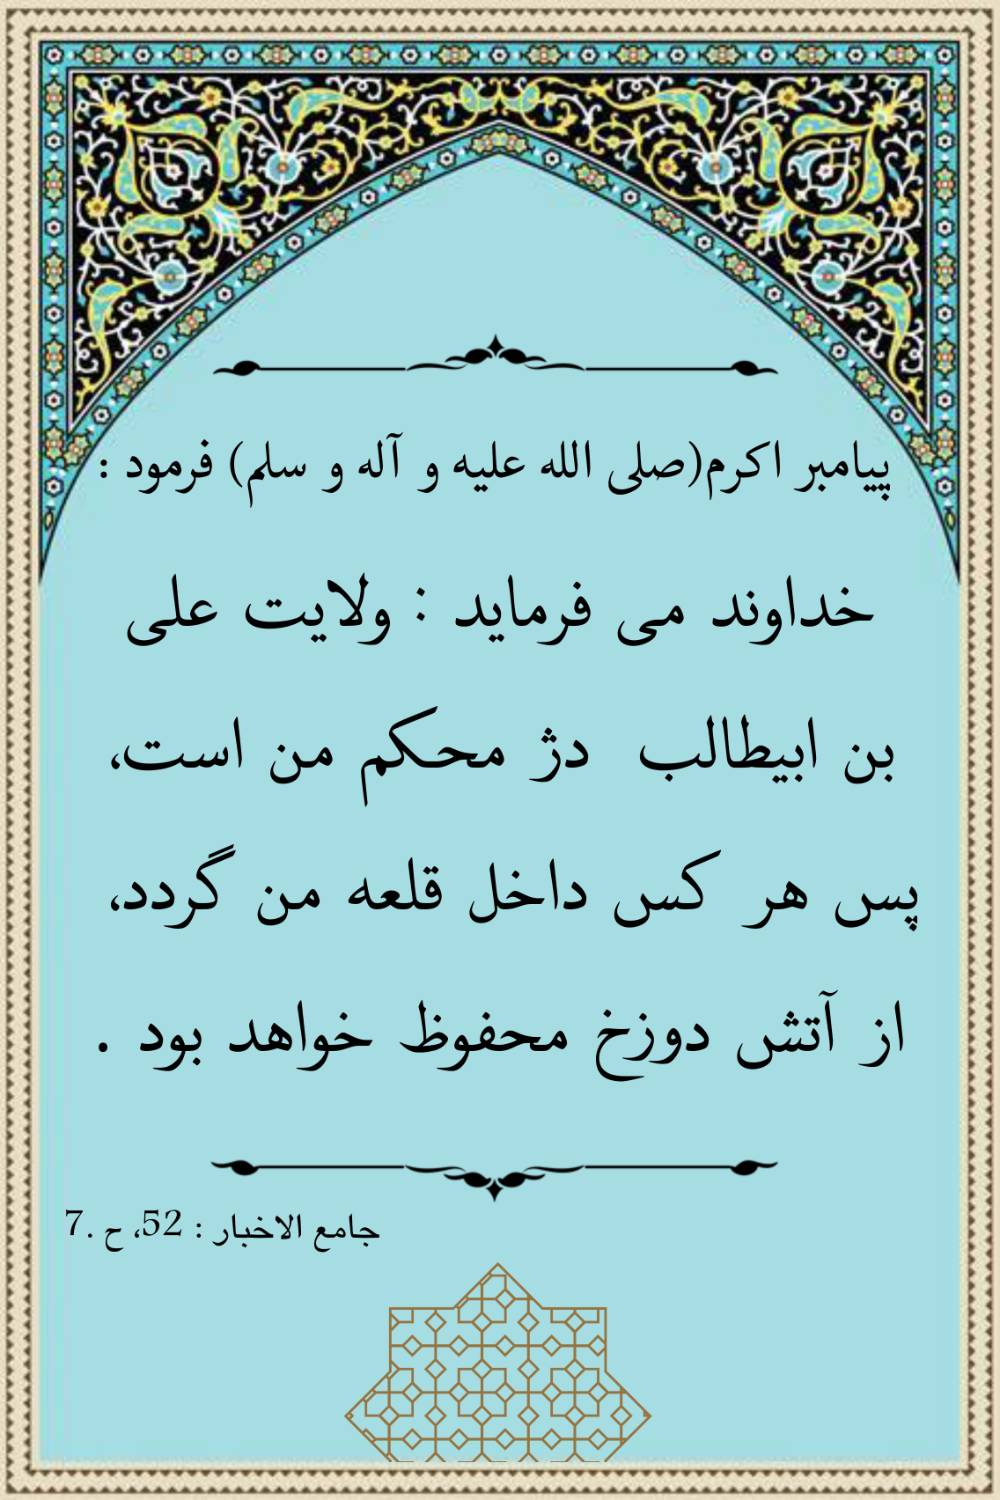 پیامبر اکرم(صلی الله علیه و آله و سلم) فرمود :
خداوند می فرماید : ولایت علی
بن ابیطالب دژ محکم من است،
پس هر کس داخل قلعه من گردد،
از آتش دوزخ محفوظ خواهد بود .
جامع الاخبار : 52، ح .7